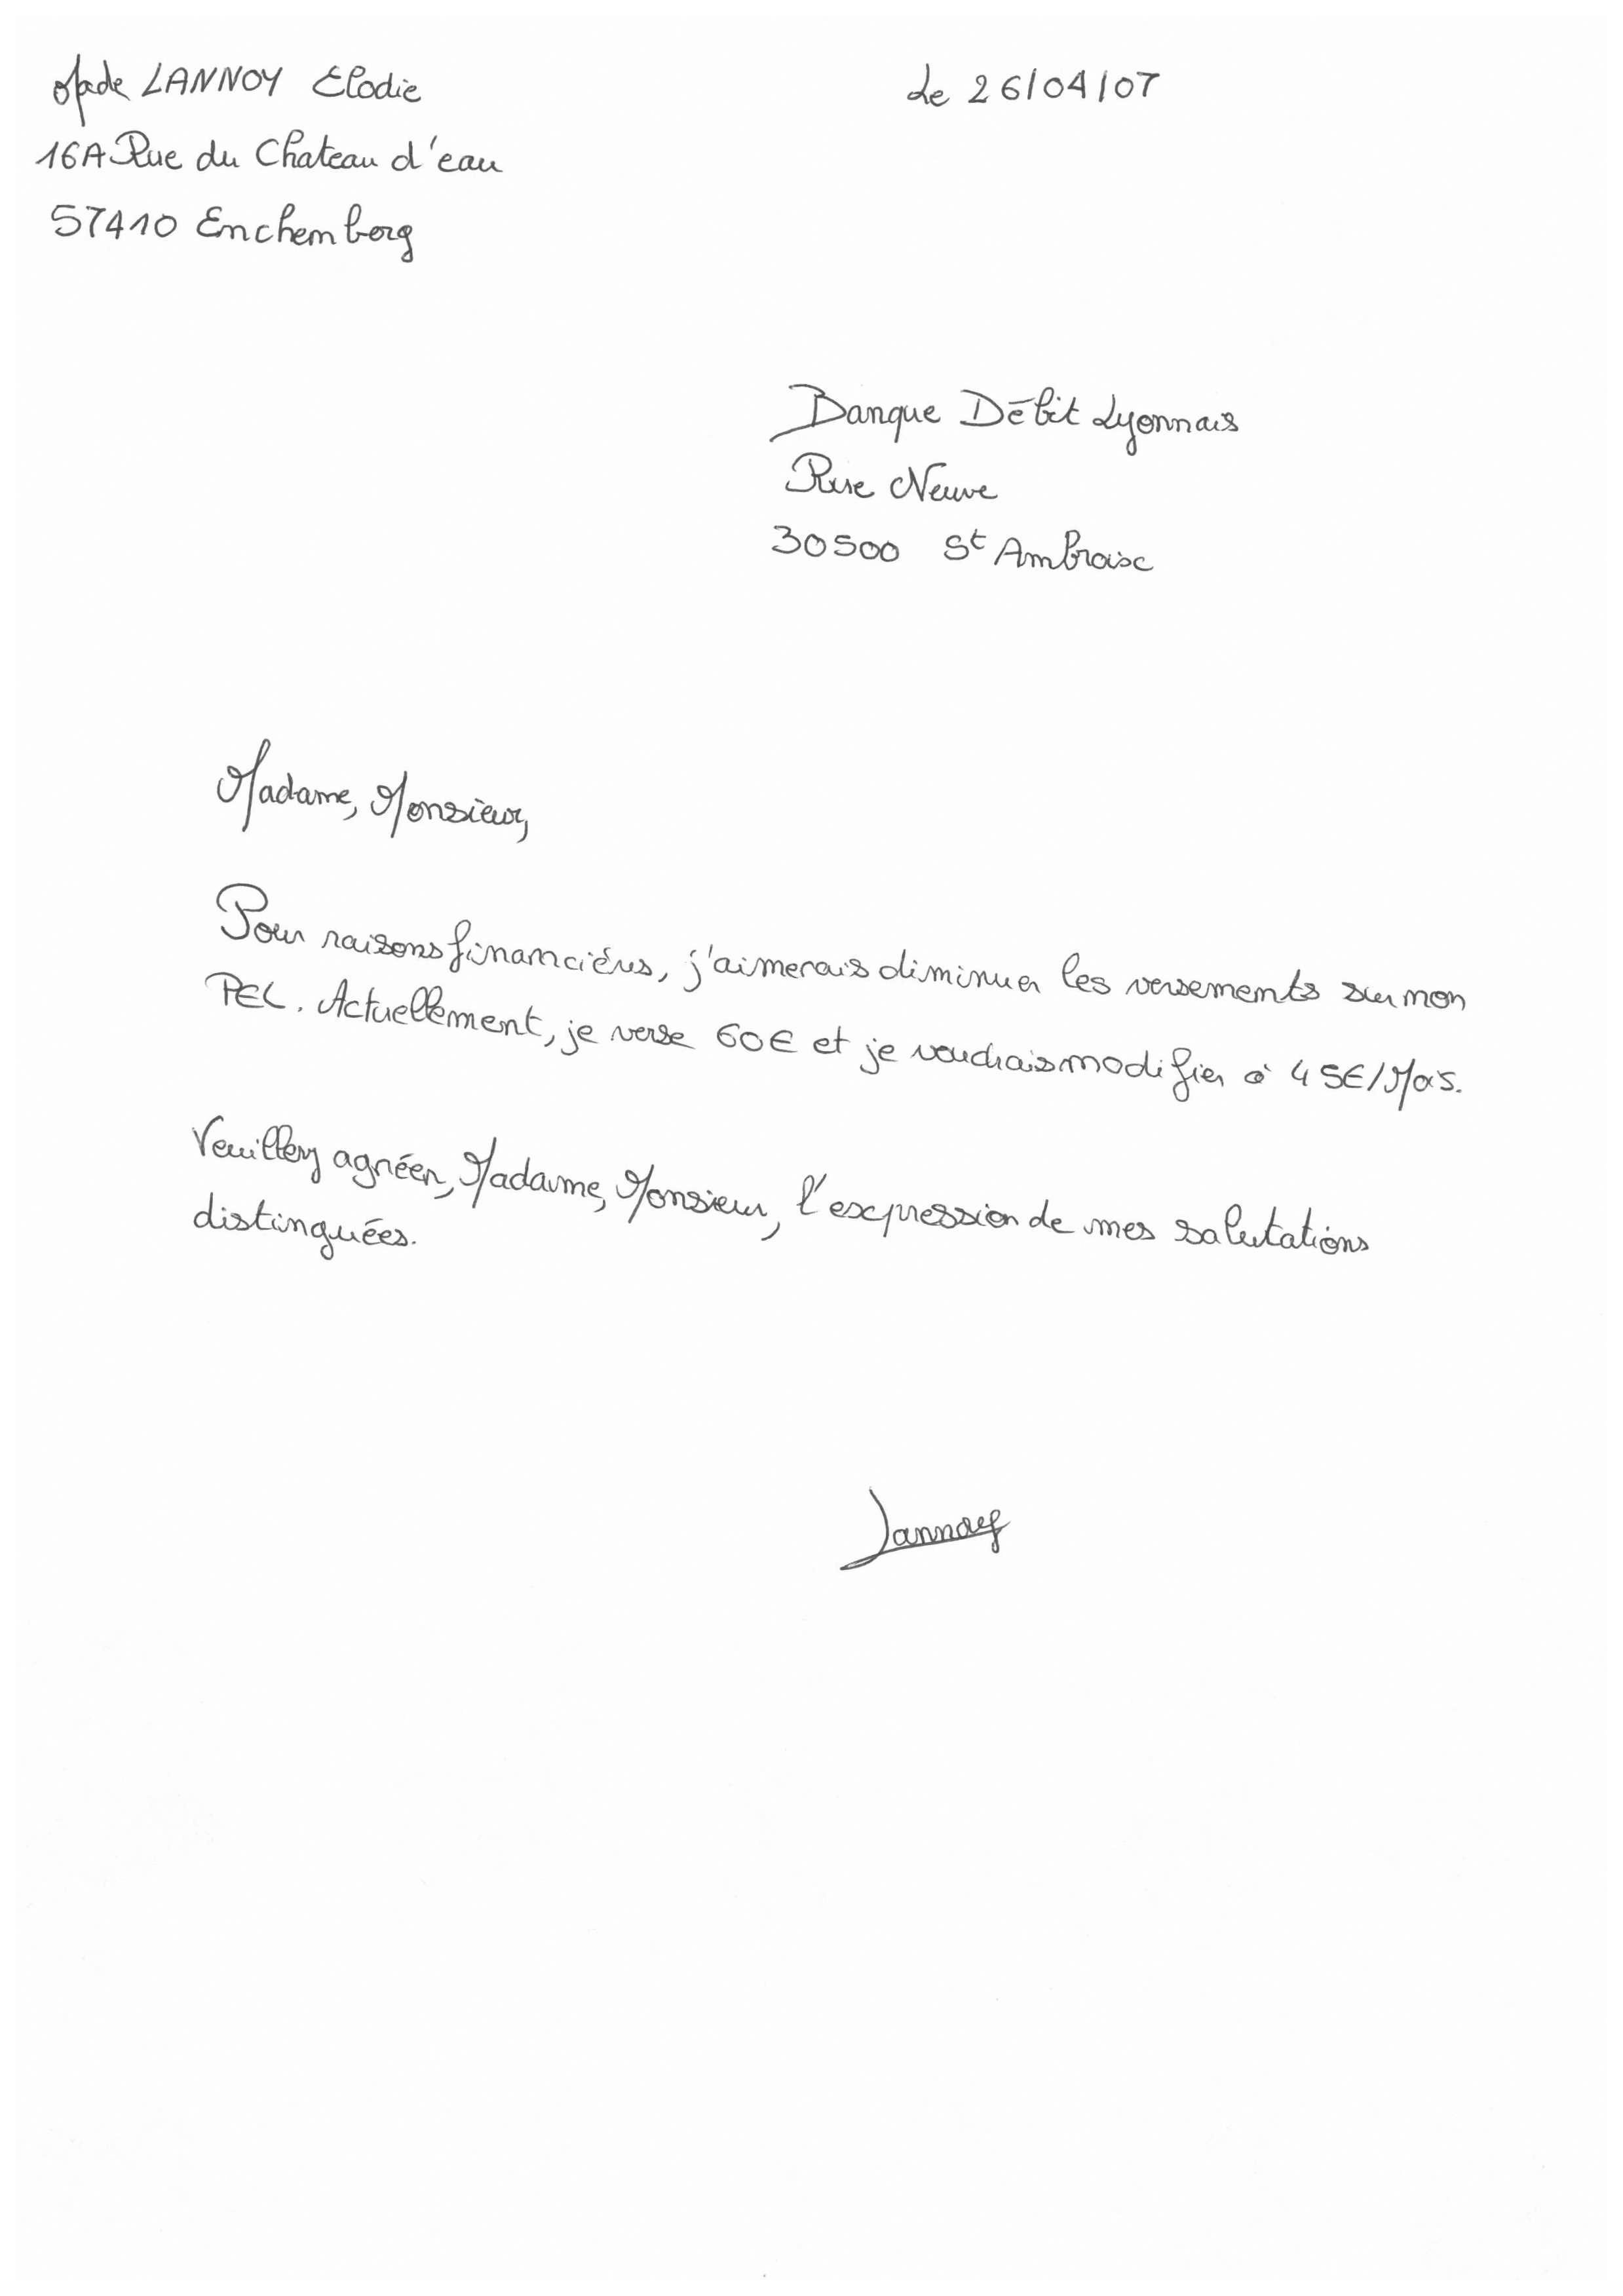 Made LANNOY Elodie
Le 26/04/07
16A Rue du Chateau d'eau
57410 Enchemberg
Banque Débit Lyonnais
Rue Neuve
30500 St Ambroise
Madame, Monsieur,
Pour raisons financiéres, j'aimerais diminuer les versements sur mon
PEL. Actuellement, je verse 60€ et je voudrais modifier à 45€/Mois.
Veuillez agréer, Madame, Monsieur, l'expression de mes salutations
distinguées.
Lannoy